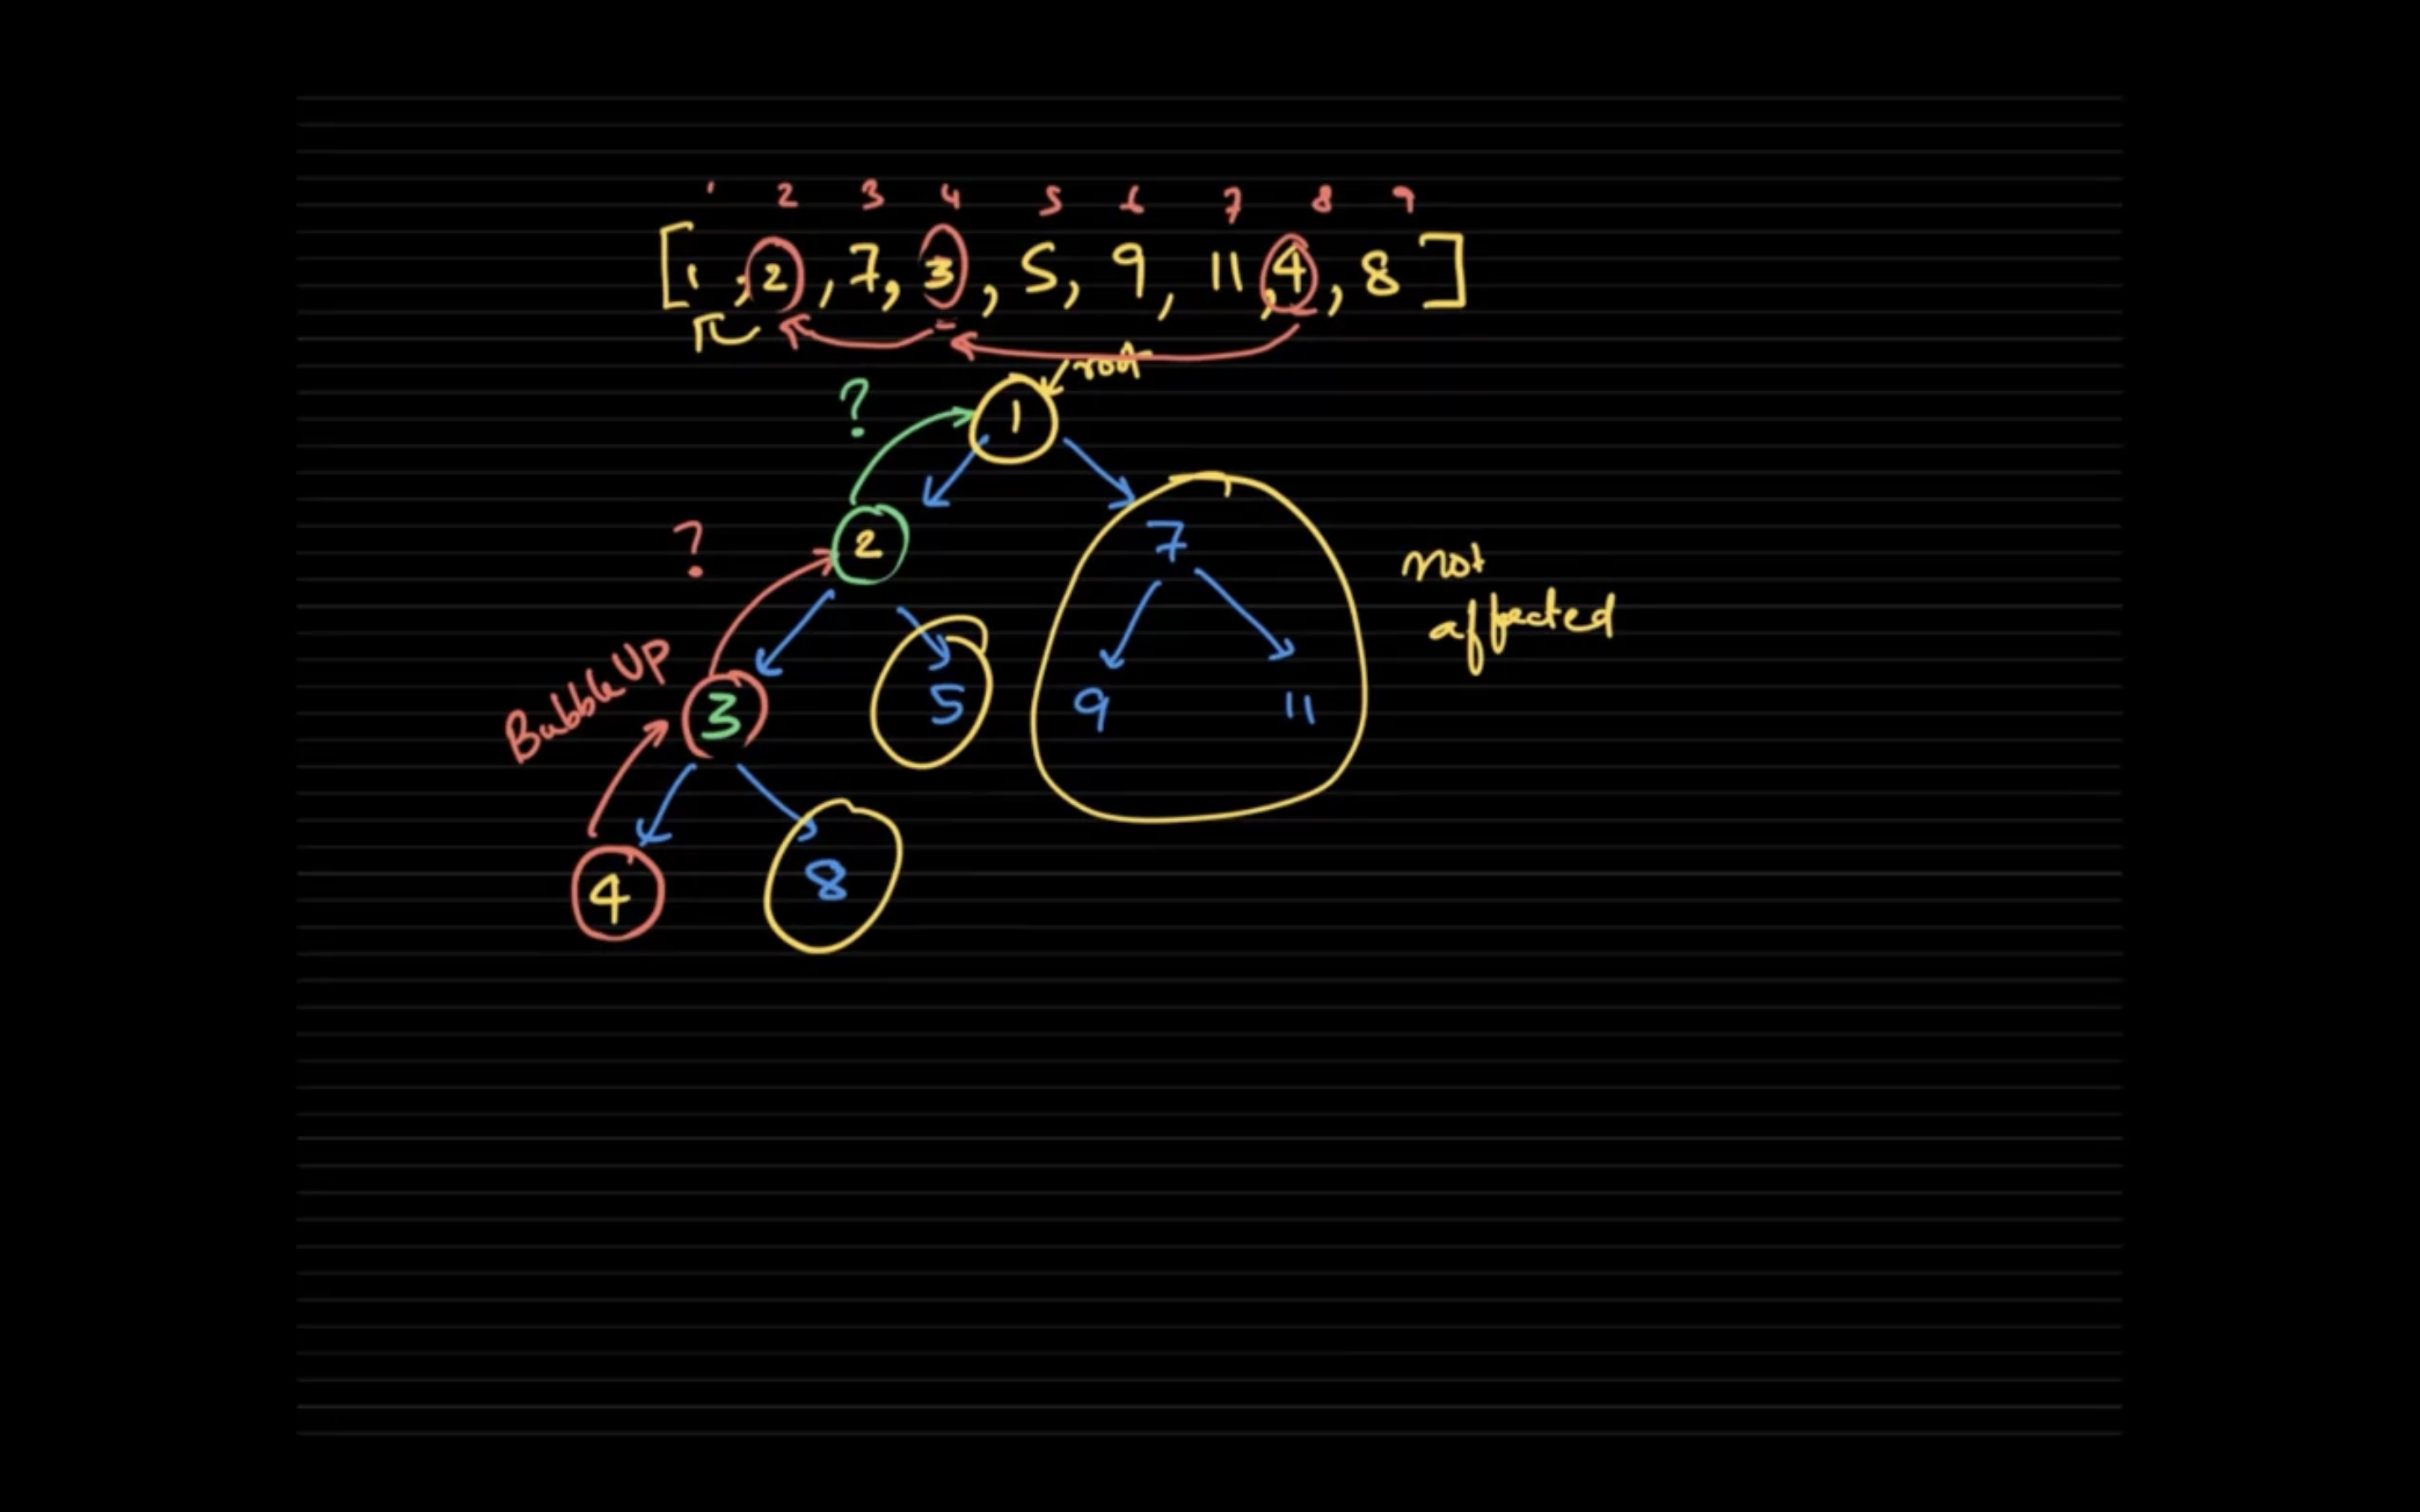 1 2 3 4 5 6 7 8 9
[1, 2, 7, 3, 5, 9, 11, 4, 8]
root
? 1
? 2 7
not
affected
Bubble UP
3 5 9 11
4 8